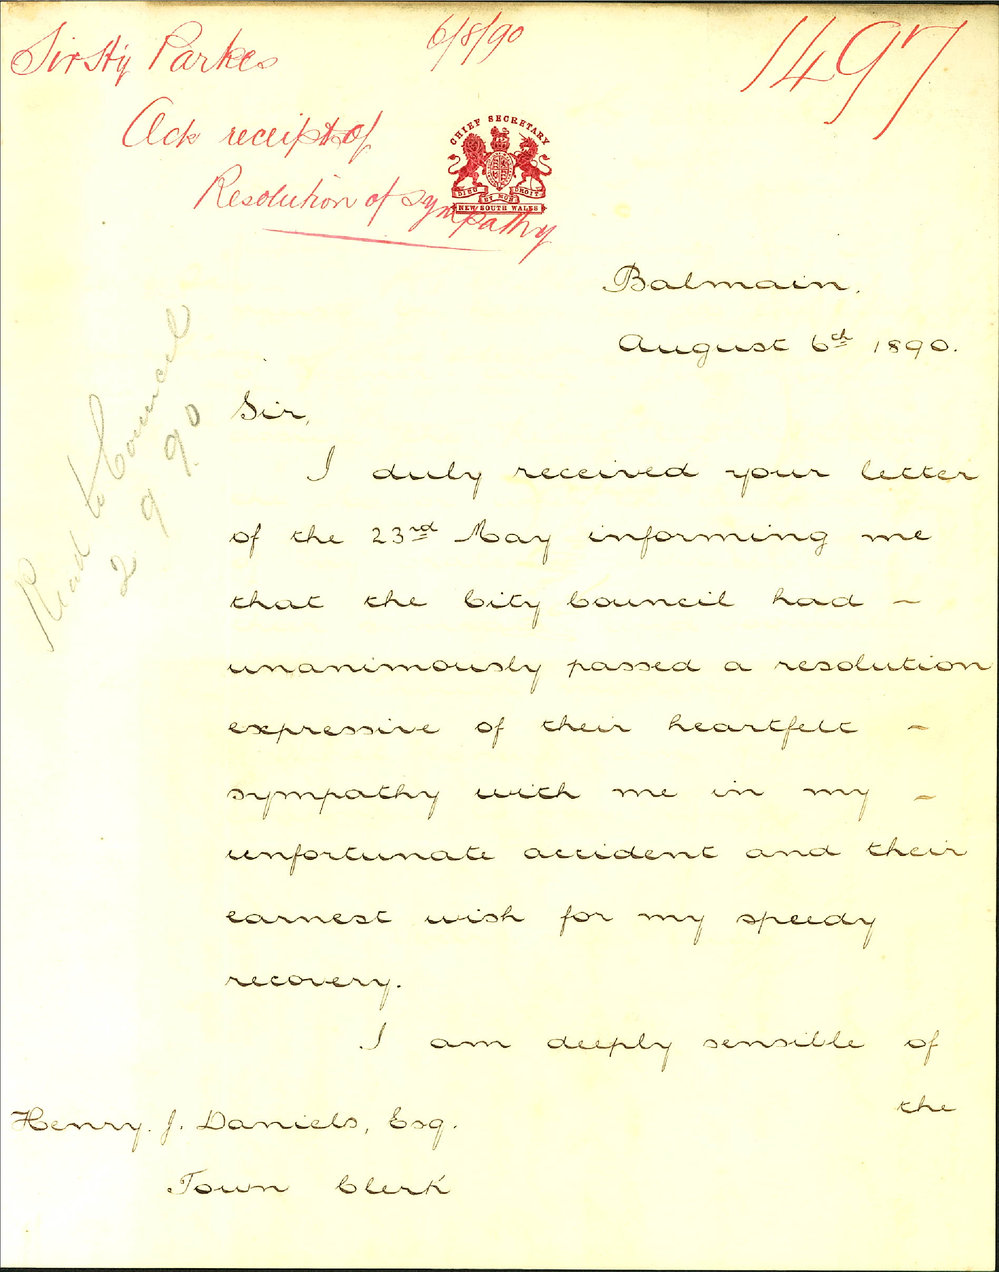 Sir Hy Parkes
6/8/90
1497
Ack receipt of
Resolution of sympathy
CHIEF SECRETARY
DIEU ET MON DROIT
NEW SOUTH WALES
Balmain,
August 6th 1890.
Read to Council
2 9 90
Sir,
I duly received your letter
of the 23rd May informing me
that the City Council had -
unanimously passed a resolution
expressive of their heartfelt -
sympathy with me in my -
unfortunate accident and their
earnest wish for my speedy
recovery.
I am deeply sensible of
the
Henry. J. Daniels, Esq.
Town Clerk